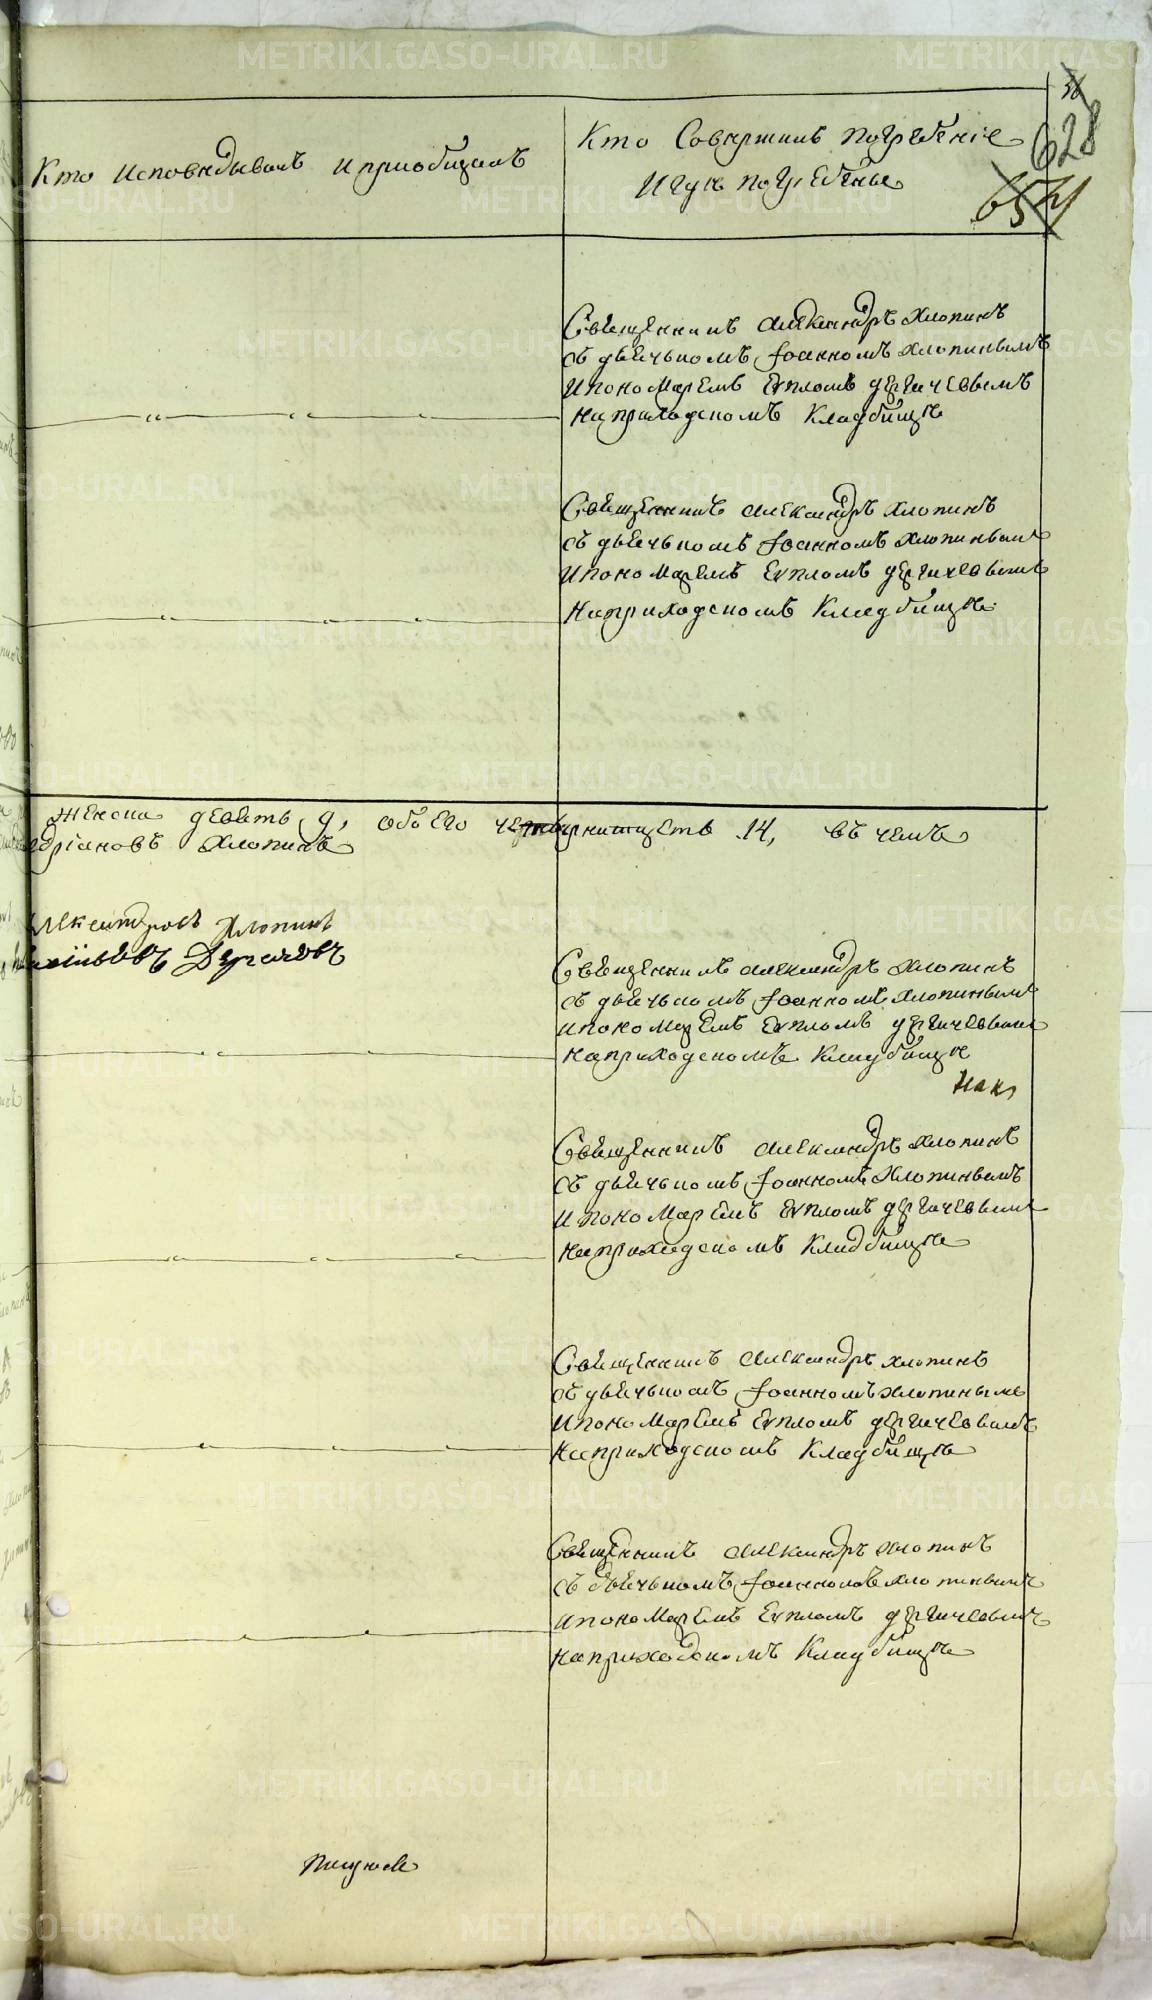 628
Кто исповѣдывалъ и приобщалъ
Кто Совершилъ погребеніе
и гдѣ погребены
Священникъ Александръ Хлопинъ
съ дьячькомъ Іоанномъ Хлопинымъ
и пономаремъ Евпломъ Дергачевымъ
на приходскомъ Кладбищѣ
Священникъ Александръ Хлопинъ
съ дьячькомъ Іоанномъ Хлопинымъ
и пономаремъ Евпломъ Дергачевымъ
на приходскомъ Кладбищѣ
женска девять 9, обоего четырнатцеть 14, въ чемъ
Хлопинъ
Хлопинъ
Дергачевъ
Священникъ Александръ Хлопинъ
съ дьячькомъ Іоанномъ Хлопинымъ
и пономаремъ Евпломъ Дергачевымъ
на приходскомъ Кладбищѣ
Священникъ Александръ Хлопинъ
съ дьячькомъ Іоанномъ Хлопинымъ
и пономаремъ Евпломъ Дергачевымъ
на приходскомъ Кладбищѣ
Священникъ Александръ Хлопинъ
съ дьячькомъ Іоанномъ Хлопинымъ
и пономаремъ Евпломъ Дергачевымъ
на приходскомъ Кладбищѣ
Священникъ Александръ Хлопинъ
съ дьячькомъ Іоанномъ Хлопинымъ
и пономаремъ Евпломъ Дергачевымъ
на приходскомъ Кладбищѣ